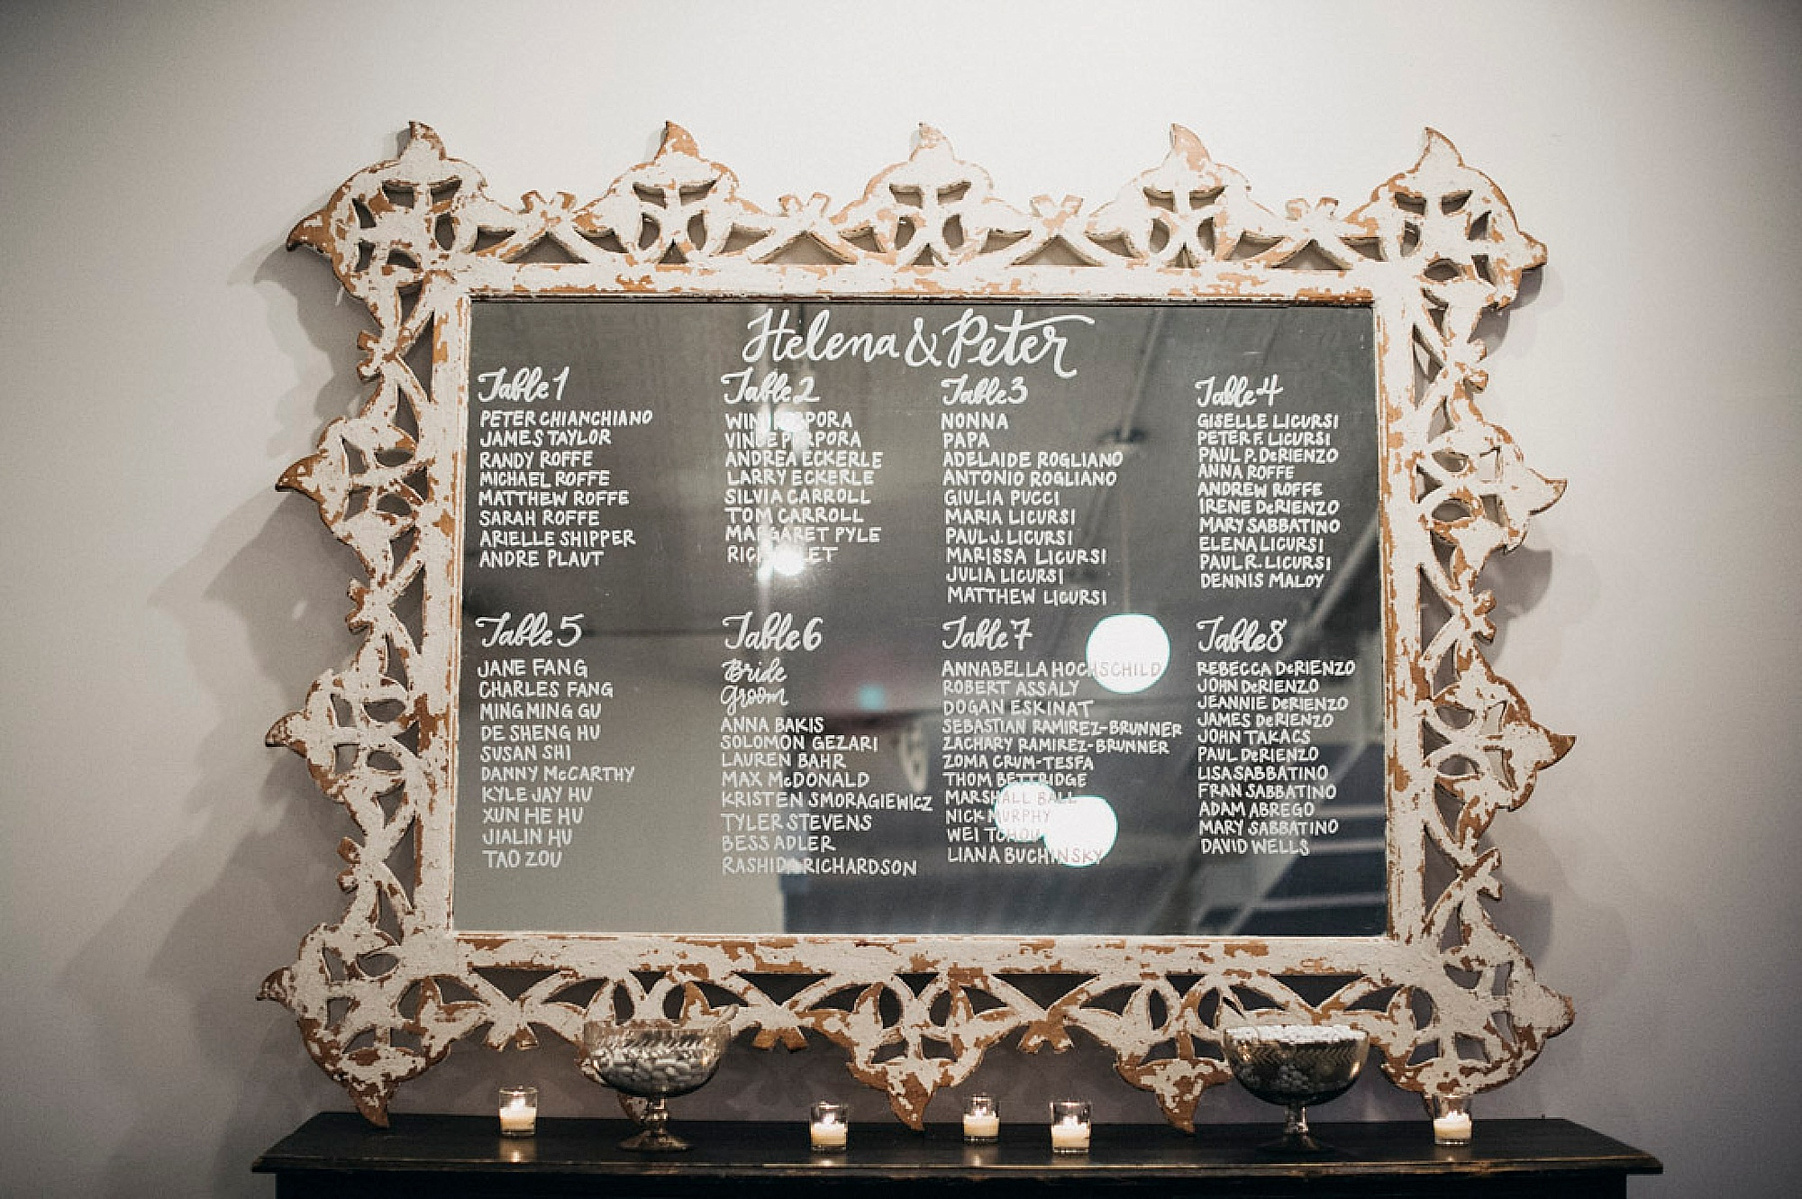 Helena & Peter
Table 1
PETER CHIANCHIANO
JAMES TAYLOR
RANDY ROFFE
MICHAEL ROFFE
MATTHEW ROFFE
SARAH ROFFE
ARIELLE SHIPPER
ANDRE PLAUT
Table 2
WINI PORPORA
VINCE PORPORA
ANDREA ECKERLE
LARRY ECKERLE
SILVIA CARROLL
TOM CARROLL
MARGARET PYLE
Table 3
NONNA
PAPA
ADELAIDE ROGLIANO
ANTONIO ROGLIANO
GIULIA PUCCI
MARIA LICURSI
PAUL J. LICURSI
MARISSA LICURSI
JULIA LICURSI
MATTHEW LICURSI
Table 4
GISELLE LICURSI
PETER F. LICURSI
PAUL P. DeRIENZO
ANNA ROFFE
ANDREW ROFFE
IRENE DeRIENZO
MARY SABBATINO
ELENA LICURSI
PAUL R. LICURSI
DENNIS MALOY
Table 5
JANE FANG
CHARLES FANG
MING MING GU
DE SHENG HU
SUSAN SHI
DANNY McCARTHY
KYLE JAY HU
XUN HE HU
JIALIN HU
TAO ZOU
Table 6
Bride
Groom
ANNA BAKIS
SOLOMON GEZARI
LAUREN BAHR
MAX McDONALD
KRISTEN SMORAGIEWICZ
TYLER STEVENS
BESS ADLER
RASHIDA RICHARDSON
Table 7
ANNABELLA HOCHSCHILD
ROBERT ASSALY
DOGAN ESKINAT
SEBASTIAN RAMIREZ-BRUNNER
ZACHARY RAMIREZ-BRUNNER
ZOMA CRUM-TESFA
THOM BETTRIDGE
MARSHALL BALL
NICK MURPHY
WEI TCHOU
LIANA BUCHINSKY
Table 8
REBECCA DeRIENZO
JOHN DeRIENZO
JEANNIE DeRIENZO
JAMES DeRIENZO
JOHN TAKACS
PAUL DeRIENZO
LISA SABBATINO
FRAN SABBATINO
ADAM ABREGO
MARY SABBATINO
DAVID WELLS